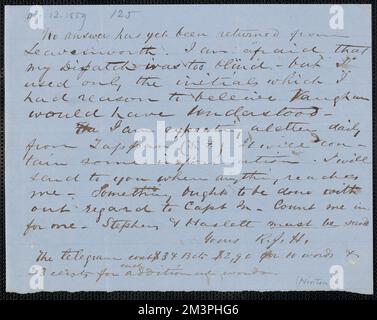 12. 1859 125
No answer has yet been returned from
Leavenworth. I am afraid that
my Dispatch was too blind - but I
used only the initials which I
had reason to believe Vaughan
would have understood -
I am expecting a letter daily
from
tain some information. I will
send to you when anything reaches
me - Something ought to be done with
out regard to Capt M- Count me in
for one - Stephens & Haslett must be saved
Yours R. J. H.
The telegram cost $3.34 2,90 for 10 words &
cts for each additional words.
(Hinton
alamy
Image ID: 2M3PHG6
www.alamy.com